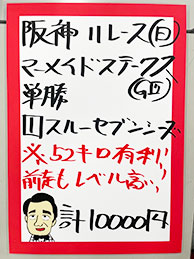 阪神11レース(日)
マーメイドステークス
(GⅢ)
単勝
1スルーセブンシーズ
※52キロ有利!
前走もレベル高い
計10000円